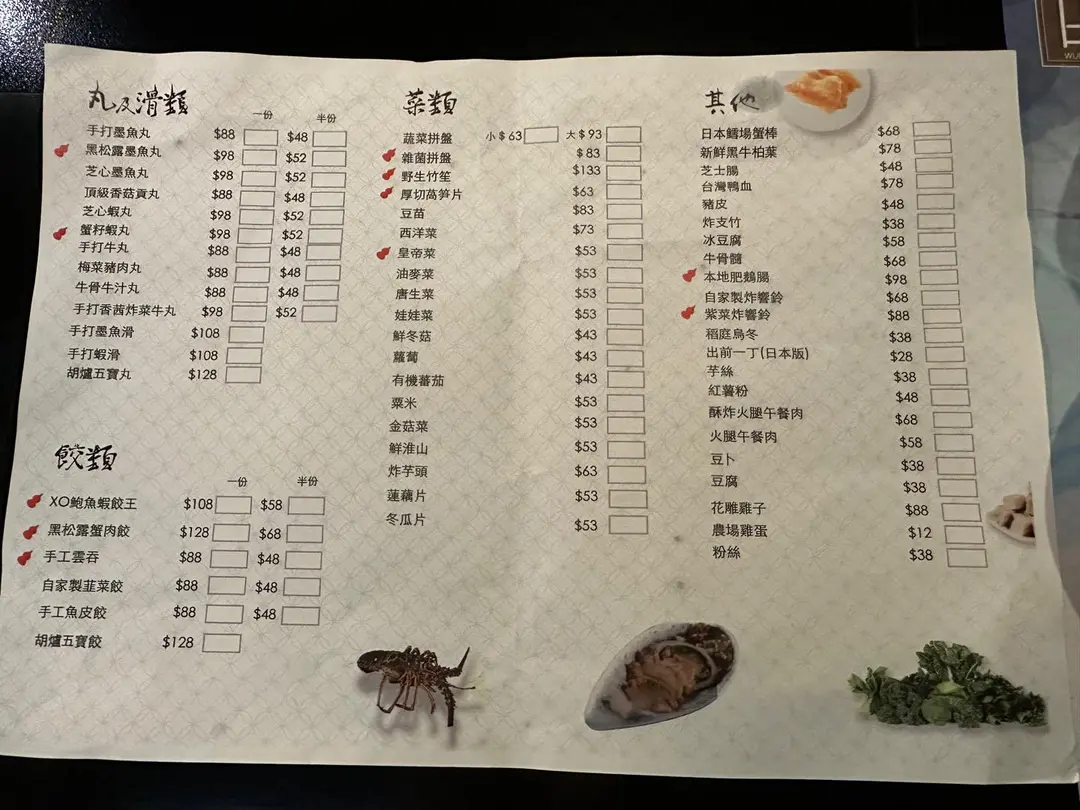 丸及滑類
一份 半份
手打墨魚丸 $88 $48
黑松露墨魚丸 $98 $52
芝心墨魚丸 $98 $52
頂級香菇貢丸 $88 $48
芝心蝦丸 $98 $52
蟹籽蝦丸 $98 $52
手打牛丸 $88 $48
梅菜豬肉丸 $88 $48
牛骨牛汁丸 $88 $48
手打香茜炸菜牛丸 $98 $52
手打墨魚滑 $108
手打蝦滑 $108
胡爐五寶丸 $128
餃類
一份 半份
XO鮑魚蝦餃王 $108 $58
黑松露蟹肉餃 $128 $68
手工雲吞 $88 $48
自家製韮菜餃 $88 $48
手工魚皮餃 $88 $48
胡爐五寶餃 $128
菜類
蔬菜拼盤 小$63 大$93
雜菌拼盤 $83
野生竹笙 $133
厚切萵笋片 $63
豆苗 $83
西洋菜 $73
皇帝菜 $53
油麥菜 $53
唐生菜 $53
娃娃菜 $53
鮮冬菇 $43
蘿蔔 $43
有機蕃茄 $43
粟米 $53
金菇菜 $53
鮮淮山 $53
炸芋頭 $63
蓮藕片 $53
冬瓜片 $53
其他
日本鱈場蟹棒 $68
新鮮黑牛柏葉 $78
芝士腸 $48
台灣鴨血 $78
豬皮 $48
炸支竹 $38
冰豆腐 $58
牛骨髓 $68
本地肥鵝腸 $98
自家製炸響鈴 $68
紫菜炸響鈴 $88
稻庭烏冬 $38
出前一丁(日本版) $28
芋絲 $38
紅薯粉 $48
酥炸火腿午餐肉 $68
火腿午餐肉 $58
豆卜 $38
豆腐 $38
花雕雞子 $88
農場雞蛋 $12
粉絲 $38